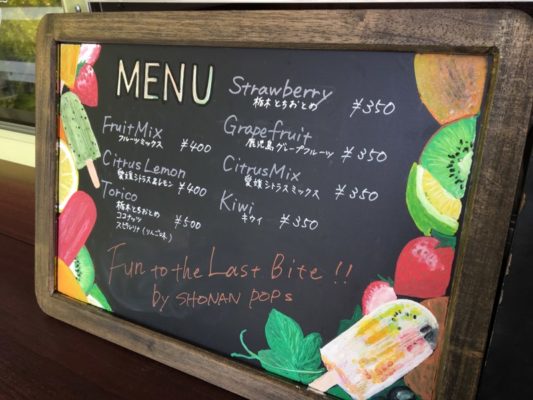 MENU
FruitMix
フルーツミックス ¥400
CitrusLemon
愛媛シトラス&レモン ¥400
Torico
栃木とちおとめ
ココナッツ ¥500
スピルリナ(りんご味)
Strawberry
栃木とちおとめ ¥350
Grapefruit
鹿児島グレープフルーツ ¥350
CitrusMix
愛媛シトラスミックス ¥350
Kiwi
キウイ ¥350
Fun to the Last Bite!!
by SHONAN POPS